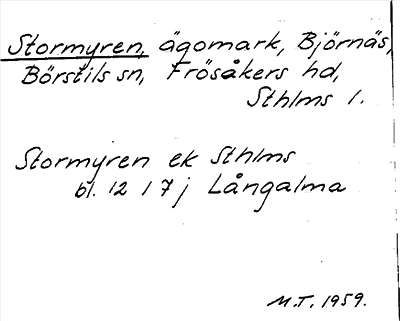 Stormyren, ägomark, Björnäs,
Börstils sn, Frösåkers hd,
Sthlms l.
Stormyren ek Sthlms
bl. 12 I 7j Långalma
M.T. 1959.